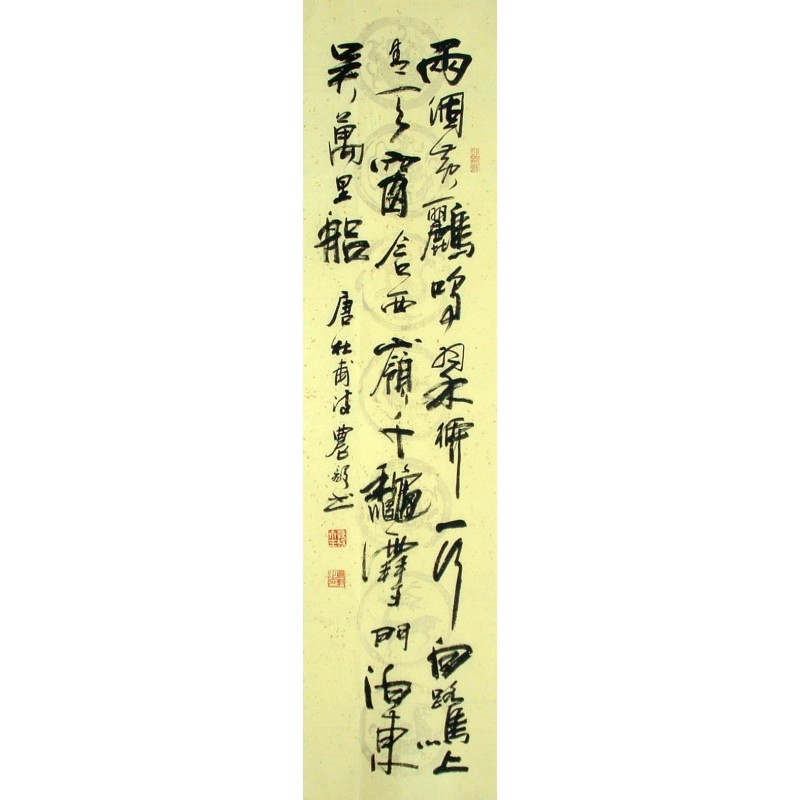 兩個黃鸝鳴翠柳一行白鷺上
青天窗含西嶺千龝雪門泊東
吳萬里船 唐杜甫詩 農書